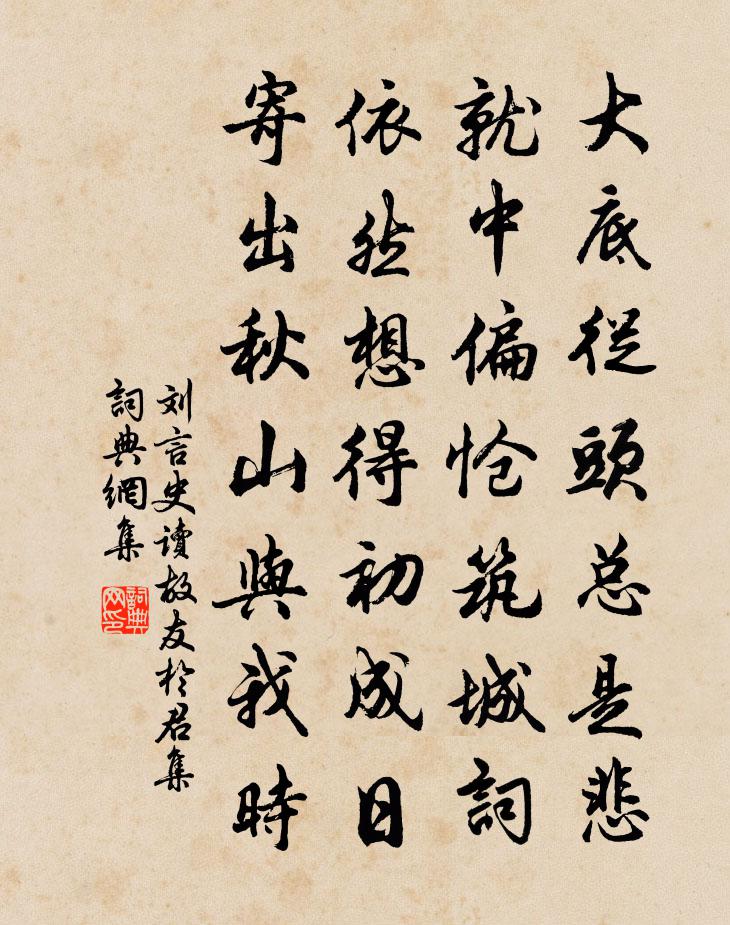 大底從頭总是悲
就中偏怆筑城詞
依然想得初成日
寄出秋山與我時
刘言史讀故友於君集
詞典網集
詞典网印